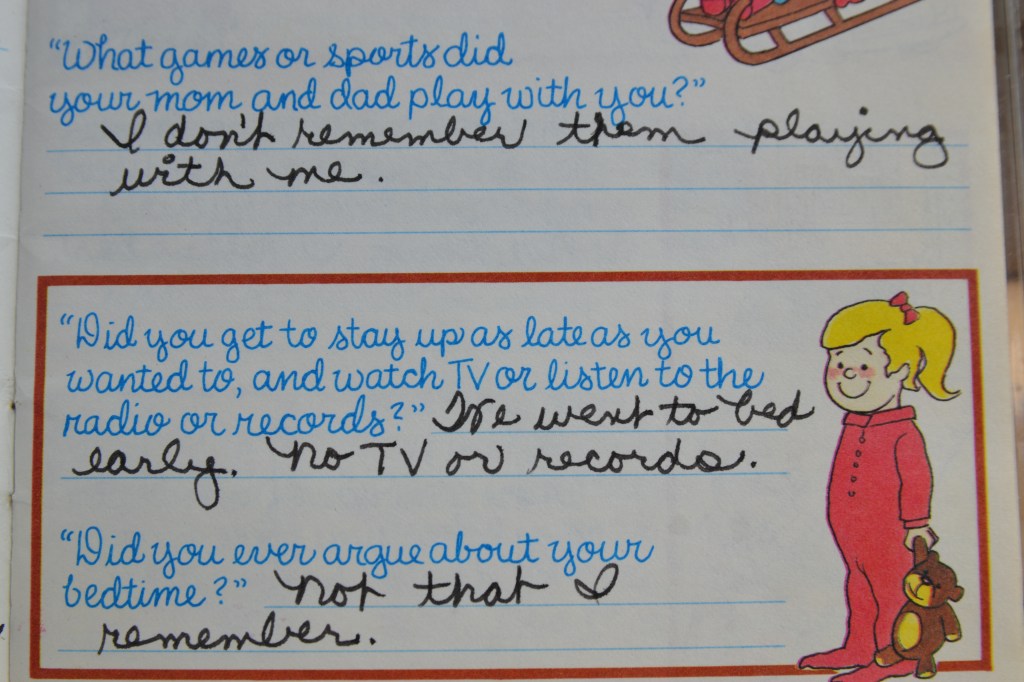 “What games or sports did
your mom and dad play with you?”
I don't remember them playing
with me.
“Did you get to stay up as late as you
wanted to, and watch TV or listen to the
radio or records?” We went to bed
early. No TV or records.
“Did you ever argue about your
bedtime?” Not that I
remember.